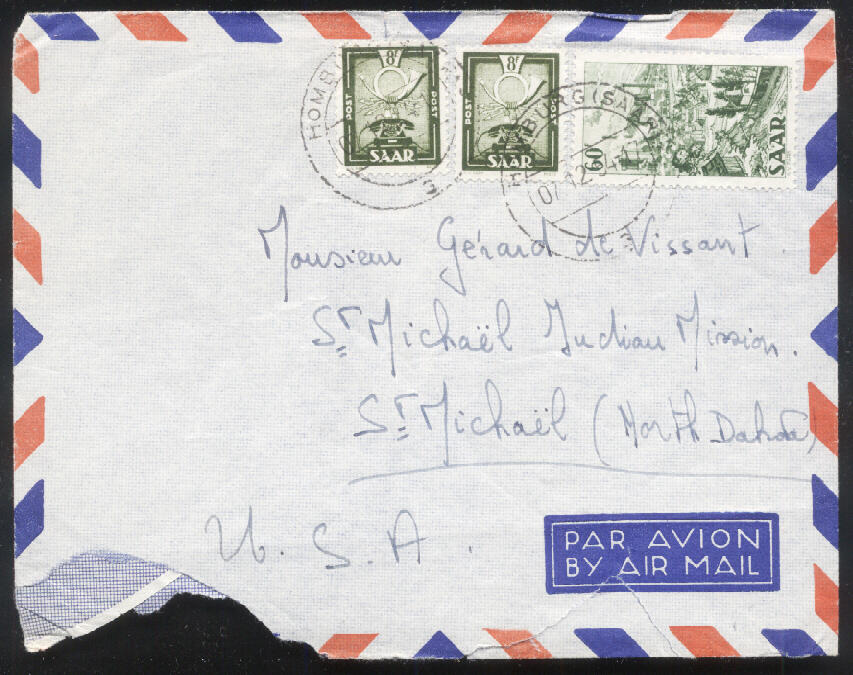 HOMBURG (SAAR)
8F
POST
POST
SAAR
8F
POST
SAAR
BURG (SAAR)
60
SAAR
Monsieur Gérard de Vissant
St Michaël Indian Mission.
St Michaël (North Dakota)
U. S. A.
PAR AVION
BY AIR MAIL